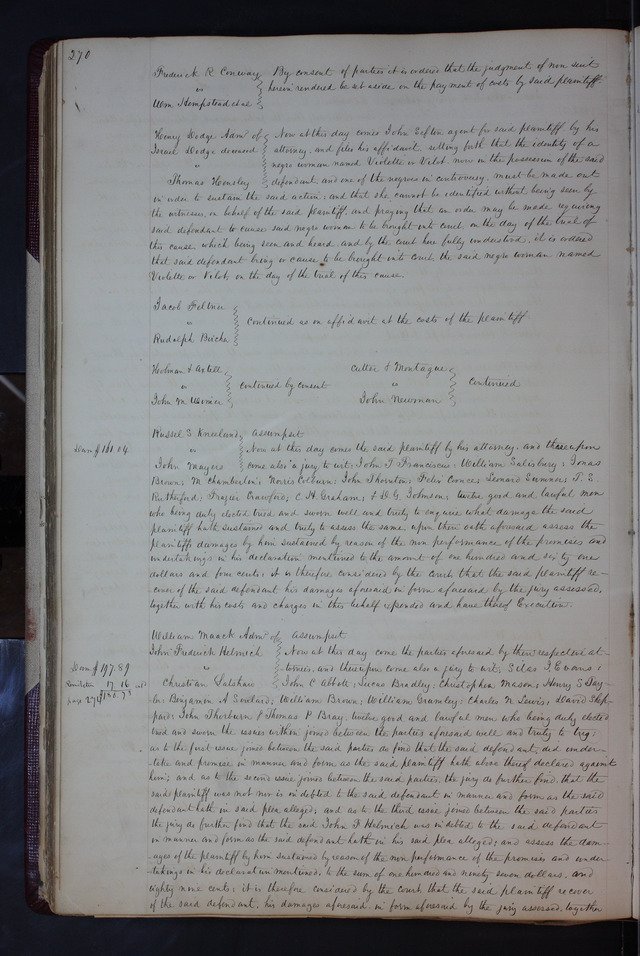 270
Frederick R Conway } By consent of parties it is ordered that the judgment of non suit
" } herein rendered be set aside on the payment of costs by said plaintiff
Wm Hempstead et al
Henry Dodge Admr of } Now at this day comes John Sefton agent for said plaintiff by his
Israel Dodge deceased } attorney, and files his affidavit, setting forth that the identity of a
" } negro woman named Violette or Vilot, now in the possession of the said
Thomas Hensley } defendant, and one of the negroes in controversy, must be made out
in order to sustain the said action, and that she cannot be identified without being seen by
the witnesses, in behalf of the said plaintiff, and praying that an order may be made requiring
said defendant to cause said negro woman to be brought into court on the day of the trial of
this cause, which being seen and heard, and by the court here fully understood, it is ordered
that said defendant bring or cause to be brought into court the said negro woman named
Violette or Vilot, on the day of the trial of this cause.
Jacob
" } continued as on affidavit at the costs of the plaintiff
Rudolph
Holman &
" } continued by consent
John M
Cutter & Montague
" } continued
John Newman
Russel S. Kneeland } Assumpsit
Dam $161.04
" } Now at this day comes the said plaintiff by his attorney, and thereupon
John Mayers } come also a jury to wit: John F Franciscus; William Salisbury; Jonas
Brown; M Chamberlin; Norris Colburn; John Thornton; Felix Connor; Leonard Sumner; T. S
Rutherford; Frazier Crawford; C. H. Graham; & D. G. Johnson; twelve good and lawful men
who being duly elected tried and sworn well and truly to enquire what damage the said
plaintiff hath sustained and truly to assess the same upon their oath aforesaid assess the
plaintiffs damages by him sustained by reason of the non performance of the promises and
undertakings in his declaration mentioned to the amount of one hundred and sixty one
dollars and four cents; it is therefore considered by the Court that the said plaintiff re-
cover of the said defendant his damages aforesaid in form aforesaid by the jury assessed,
together with his costs and charges in this behalf expended and have thereof Execution.
William Maack Admr of } Assumpsit
John Frederick Helmech } Now at this day come the parties aforesaid by their respective at-
Dam $197.89
" } torneys, and thereupon come also a jury to wit; Silas J Evans;
Remittitur 17.16
Christian } John C Abbott; Lucas Bradley; Christopher Mason; Henry S Tay-
page 278 $180.73
lor; Benjamin A Soulard; William Brown; William Grumley; Charles N Lewis; David Shep-
pard; John Thorburn & Thomas P Bray, twelve good and lawful men who being duly elected
tried and sworn the issues within joined between the parties aforesaid well and truly to try;
as to the first issue joined between the said parties do find that the said defendant, did under-
take and promise in manner and form as the said plaintiff hath above thereof declared against
him; and as to the second issue joined between the said parties, the jury do further find, that the
said plaintiff was not nor is indebted to the said defendant in manner and form as the said
defendant hath in said plea alleged; and as to the third issue joined between the said parties
the jury do further find that the said John F Helmech was indebted to the said defendant
in manner and form as the said defendant hath in his said plea alleged; and assess the dam-
ages of the plaintiff by him sustained by reason of the non performance of the promises and under-
takings in his declaration mentioned, to the sum of one hundred and ninety seven dollars, and
eighty nine cents; it is therefore considered by the court that the said plaintiff recover
of the said defendant, his damages aforesaid in form aforesaid by the jury assessed, together